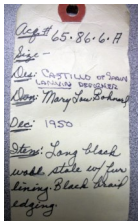 Acq# 65.86.6.A
Size-
Des: CASTILLO of SPAIN
LANVIN DESIGNER
Don: Mary Lou
Dec: 1950
Item: Long black
wool stole w/ fur
lining. Black braid
edging.